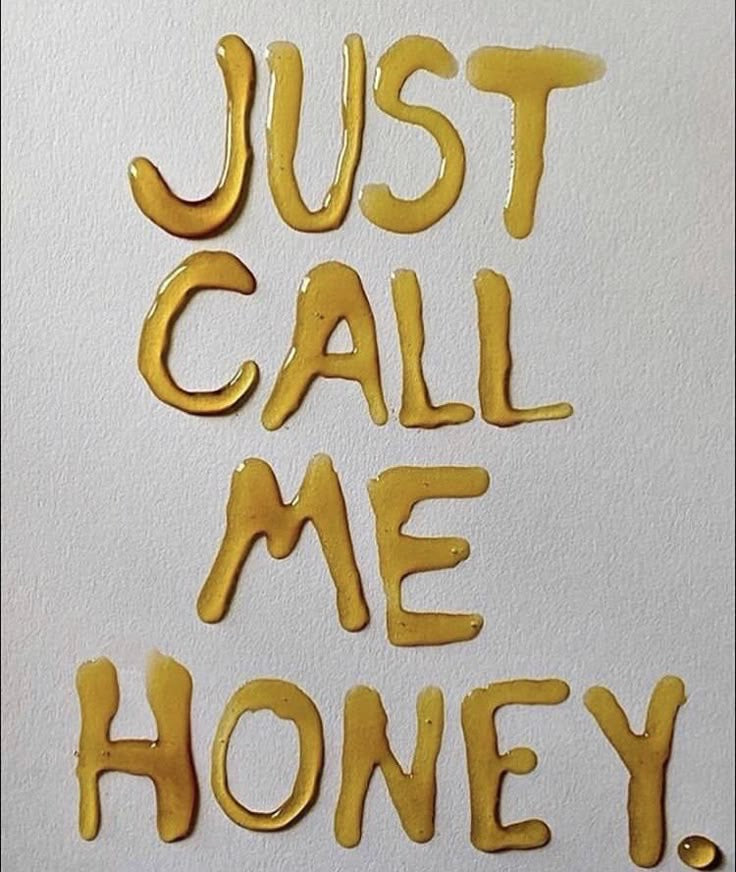 JUST
CALL
ME
HONEY.